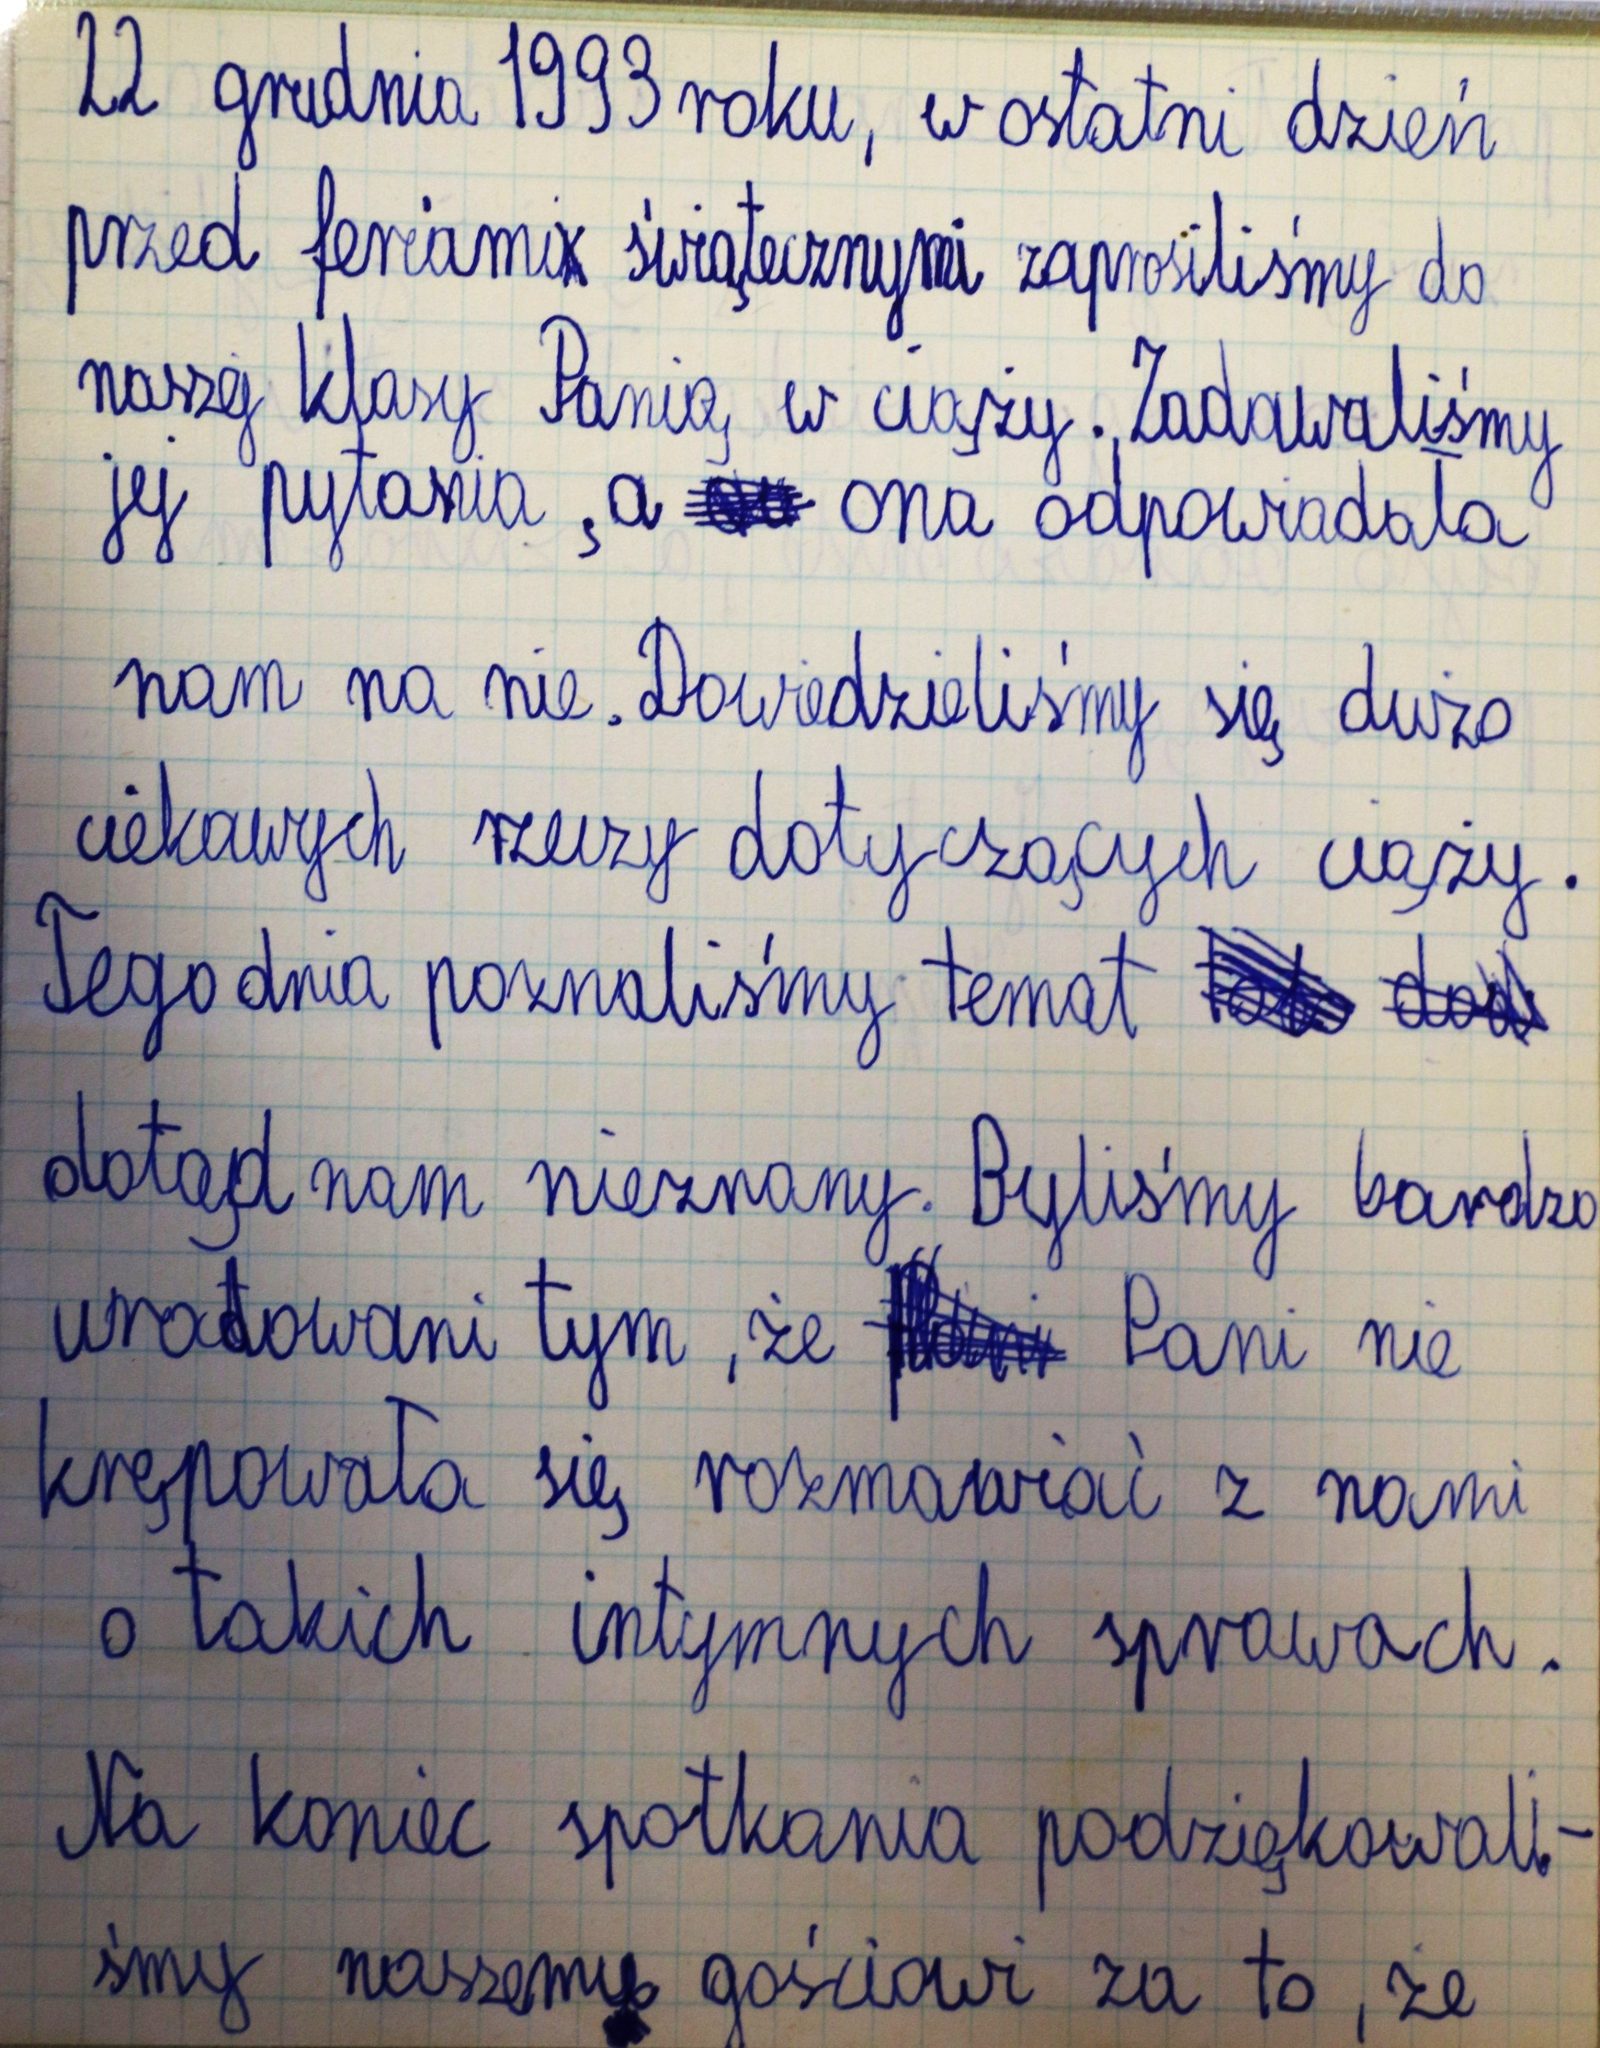 22 grudnia 1993 roku, w ostatni dzień
przed feriami świątecznymi zaprosiliśmy do
naszej klasy Panią w ciąży. Zadawaliśmy
jej pytania, a ona odpowiadała
nam na nie. Dowiedzieliśmy się dużo
ciekawych rzeczy dotyczących ciąży.
Tego dnia poznaliśmy temat
dotąd nam nieznany. Byliśmy bardzo
uradowani tym, że Pani nie
krępowała się rozmawiać z nami
o takich intymnych sprawach.
Na koniec spotkania podziękowali-
śmy naszemu gościowi za to, że